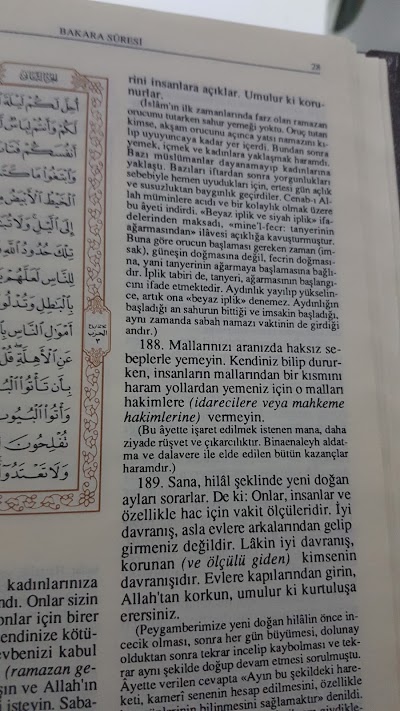 BAKARA SÛRESİ
28
اُحِلَّ لَكُمْ لَيْلَةَ
لَكُمْ وَاَنْتُمْ لِبَاسٌ
اَنْفُسَكُمْ فَتَابَ
وَابْتَغُوا مَا
الْخَيْطُ الْاَبْيَضُ
اِلَى الَّيْلِ وَلَا
تِلْكَ حُدُودُ اللّٰهِ
لِلنَّاسِ لَعَلَّهُمْ
بِالْبَاطِلِ وَتُدْلُوا
اَمْوَالِ النَّاسِ
عَنِ الْاَهِلَّةِ قُلْ
بِاَنْ تَأْتُوا
وَأْتُوا الْبُيُوتَ
تُفْلِحُونَ
وَلَا تَعْتَدُوا
kadınlarınıza
ndı. Onlar sizin
onlar için birer
endinize kötü-
evbenizi kabul
(ramazan ge-
şın ve Allah'ın
i isteyin. Saba-
rini insanlara açıklar. Umulur ki koru-
nurlar.
(İslâm'ın ilk zamanlarında farz olan ramazan
orucunu tutarken sahur yemeği yoktu. Oruç tutan
kimse, akşam orucunu açınca yatsı namazını kı-
lıp uyuyuncaya kadar yer içerdi. Bundan sonra
yemek, içmek ve kadınlara yaklaşmak haramdı.
Bazı müslümanlar dayanamayıp kadınlarına
yaklaştı. Bazıları iftardan sonra yorgunlukları
sebebiyle hemen uyudukları için, ertesi gün açlık
ve susuzluktan baygınlık geçirdiler. Cenab-ı Al-
lah müminlere acıdı ve bir kolaylık olmak üzere
bu âyeti indirdi. «Beyaz iplik ve siyah iplik» ifa-
delerinden maksadı, «mine'l-fecr: tanyerinin
ağarmasından» ilâvesi açıklığa kavuşturmuştur.
Buna göre orucun başlaması gereken zaman (im-
sak), güneşin doğmasına değil, fecrin doğması-
na, yani tanyerinin ağarmaya başlamasına bağlı-
dır. İplik tabiri de, tanyeri, ağarmasının başlangı-
cını ifade etmektedir. Aydınlık yayılıp yükselin-
ce, artık ona «beyaz iplik» denemez. Aydınlığın
başladığı an sahurun bittiği ve imsakin başladığı,
aynı zamanda sabah namazı vaktinin de girdiği
andır.)
188. Mallarınızı aranızda haksız se-
beplerle yemeyin. Kendiniz bilip durur-
ken, insanların mallarından bir kısmını
haram yollardan yemeniz için o malları
hakimlere (idarecilere veya mahkeme
hakimlerine) vermeyin.
(Bu âyette işaret edilmek istenen mana, daha
ziyade rüşvet ve çıkarcılıktır. Binaenaleyh aldat-
ma ve dalavere ile elde edilen bütün kazançlar
haramdır.)
189. Sana, hilâl şeklinde yeni doğan
ayları sorarlar. De ki: Onlar, insanlar ve
özellikle hac için vakit ölçüleridir. İyi
davranış, asla evlere arkalarından gelip
girmeniz değildir. Lâkin iyi davranış,
korunan (ve ölçülü giden) kimsenin
davranışıdır. Evlere kapılarından girin,
Allah'tan korkun, umulur ki kurtuluşa
erersiniz.
(Peygamberimize yeni doğan hilâlin önce in-
cecik olması, sonra her gün büyümesi, dolunay
olduktan sonra tekrar incelip kaybolması ve tek-
rar aynı şekilde doğup devam etmesi sorulmuştu.
Âyette verilen cevapta «Ayın bu şekildeki hare-
keti, kamerî senenin hesap edilmesini, özellikle
günlerinin bilinmesini sağlamaktır» denildi.